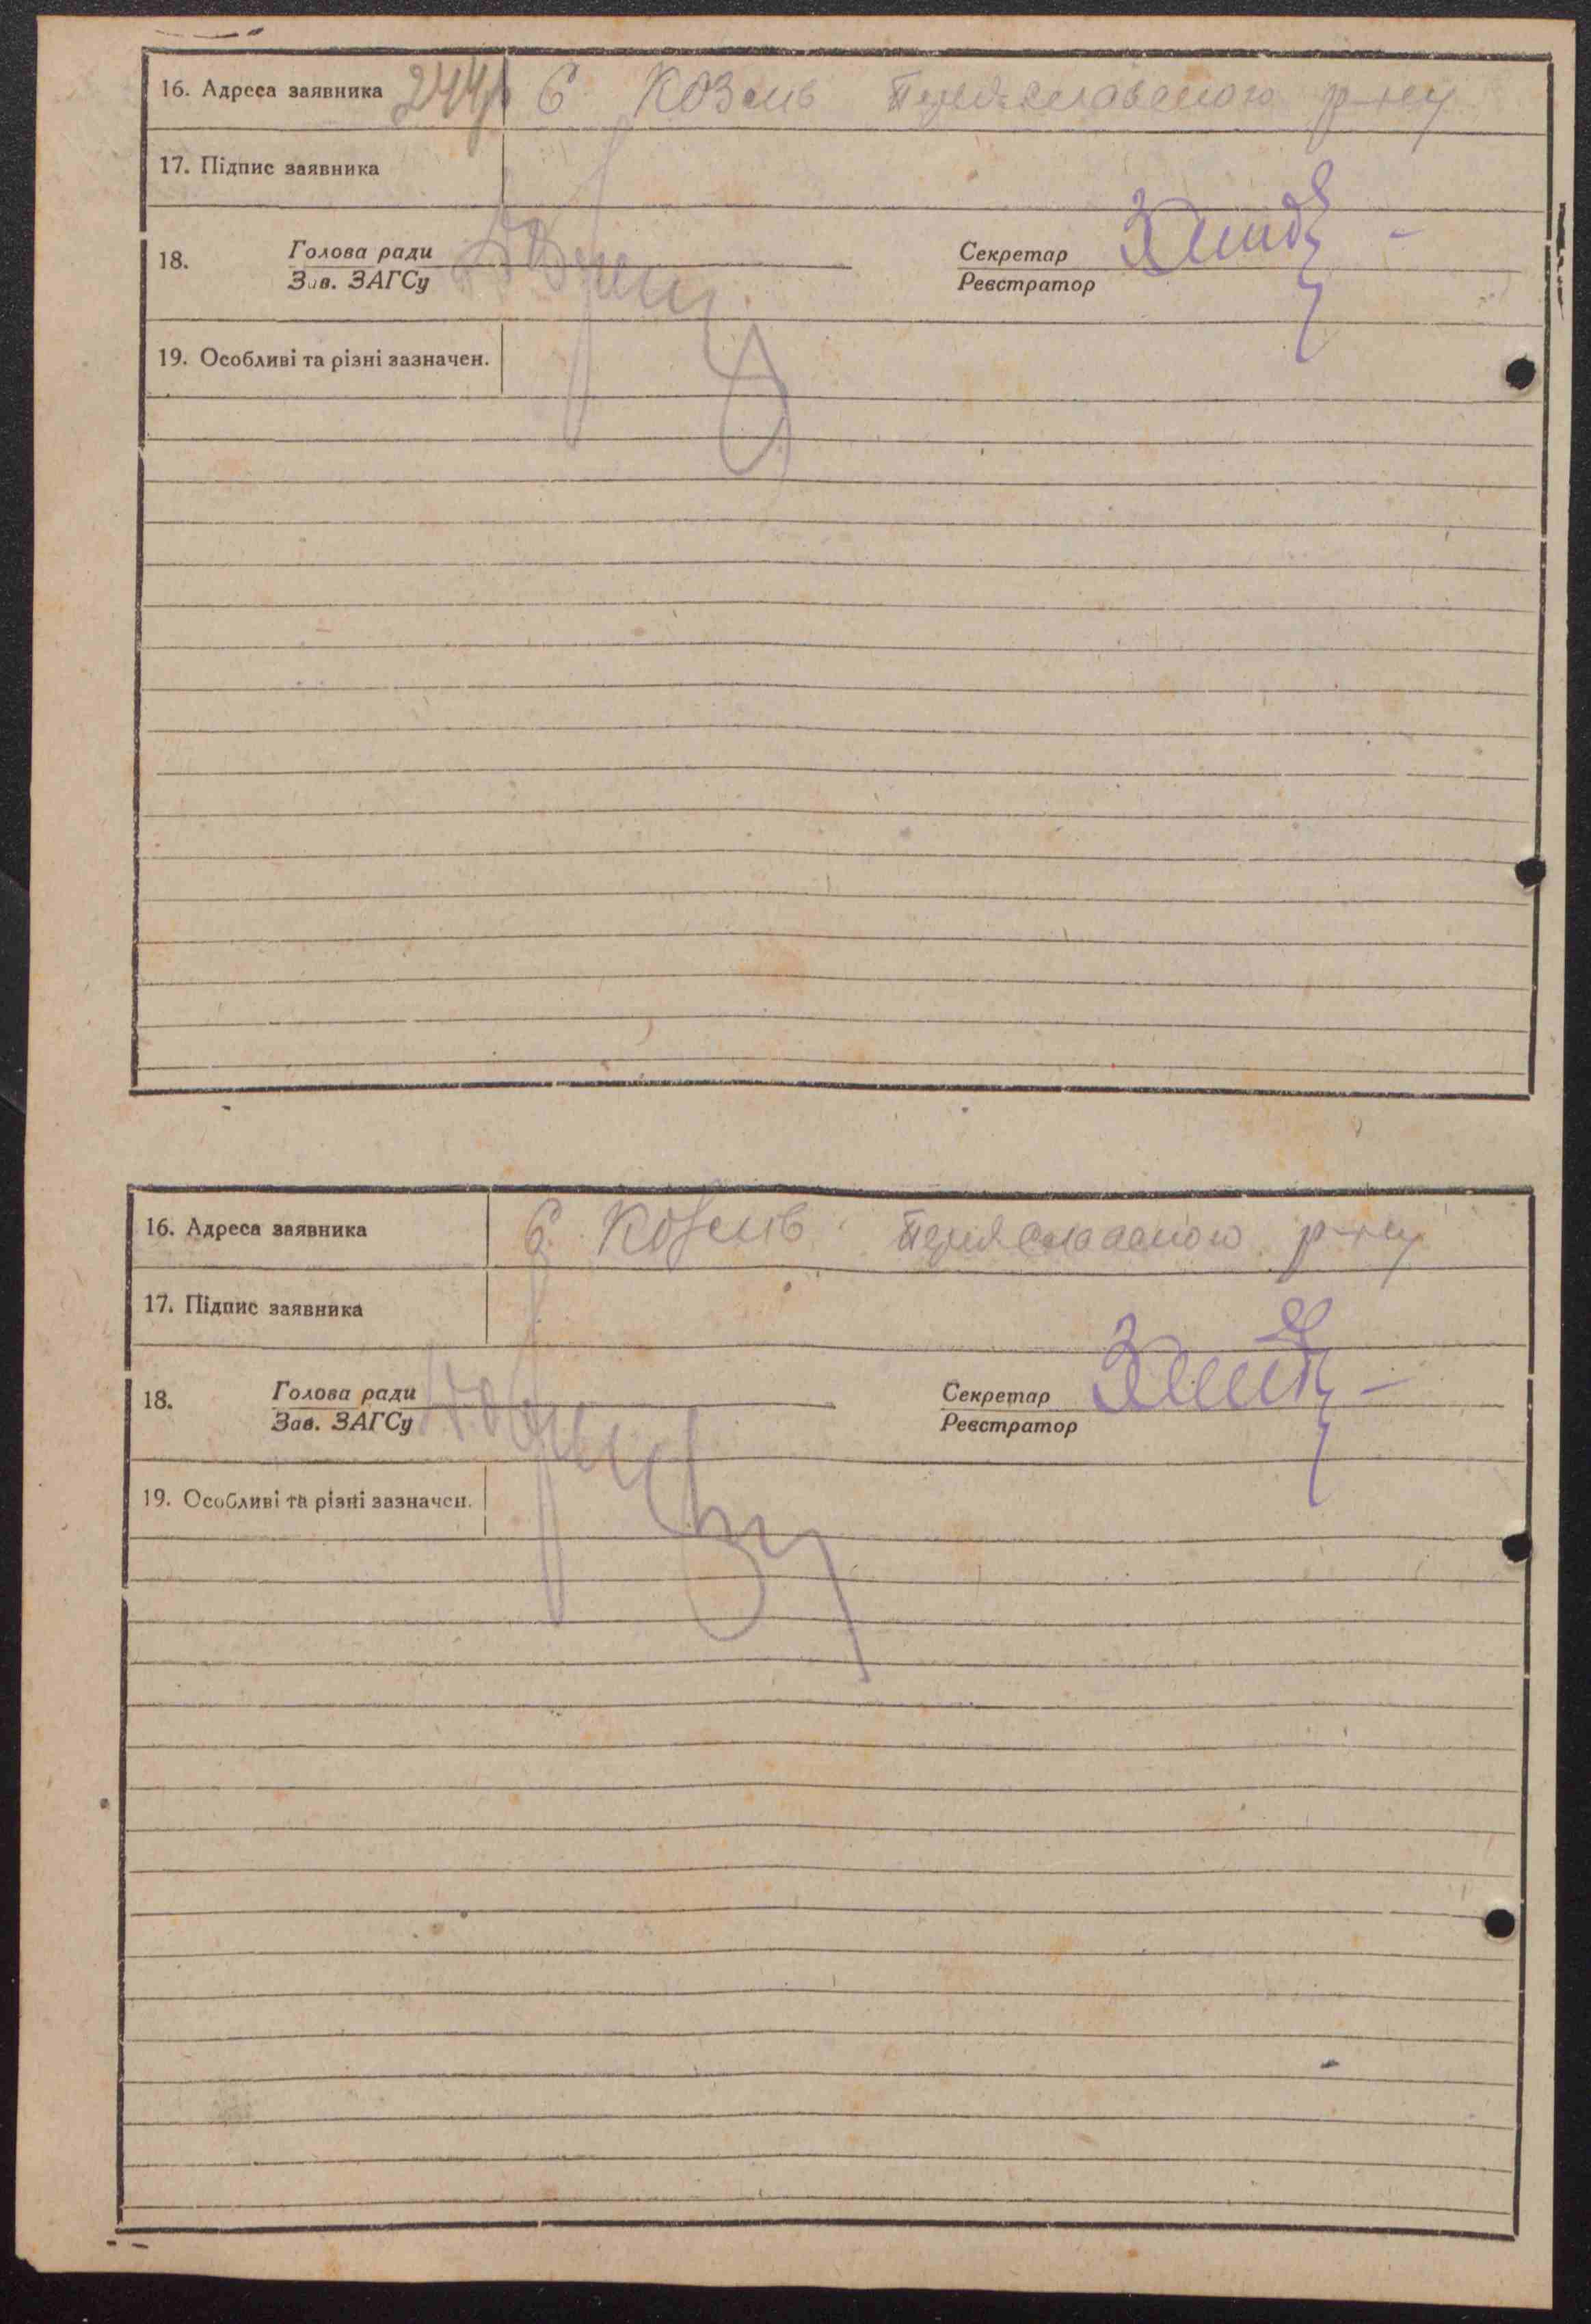 16. Адреса заявника 244 С Козлів Переяславського р-ну
17. Підпис заявника
18. Голова ради Секретар
Зав. ЗАГСу Реєстратор
19. Особливі та різні зазначен.
16. Адреса заявника С Козлів Переяславського р-ну
17. Підпис заявника
18. Голова ради Секретар
Зав. ЗАГСу Реєстратор
19. Особливі та різні зазначен.